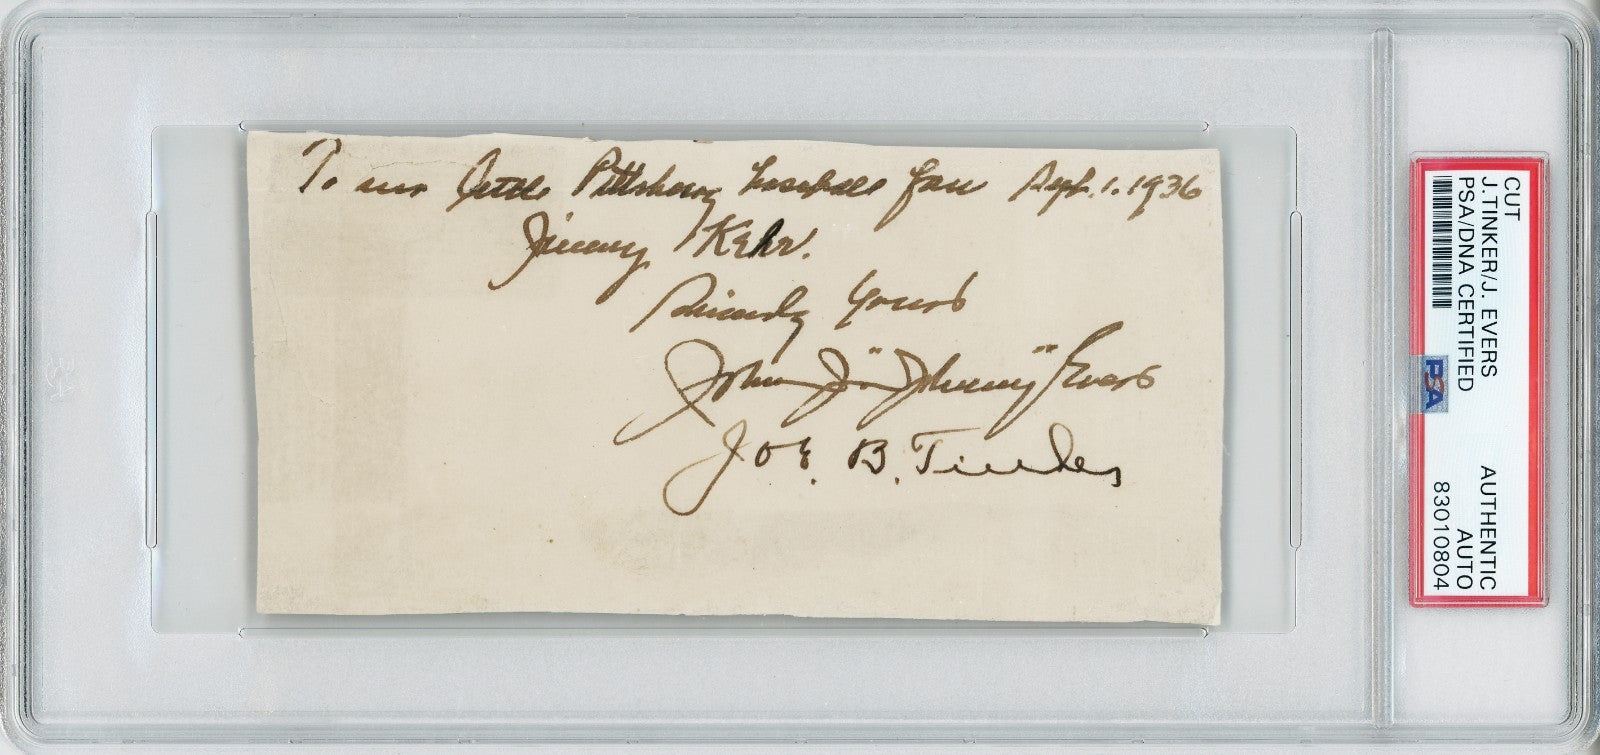 To our little Pittsburg baseball fan Sept. 1. 1936
Jimmy Kehr.
Sincerely Yours
John J "Johnny" Evers
Joe. B. Tinker
CUT
J.TINKER/J. EVERS
PSA/DNA CERTIFIED
AUTHENTIC
AUTO
83010804
PSA